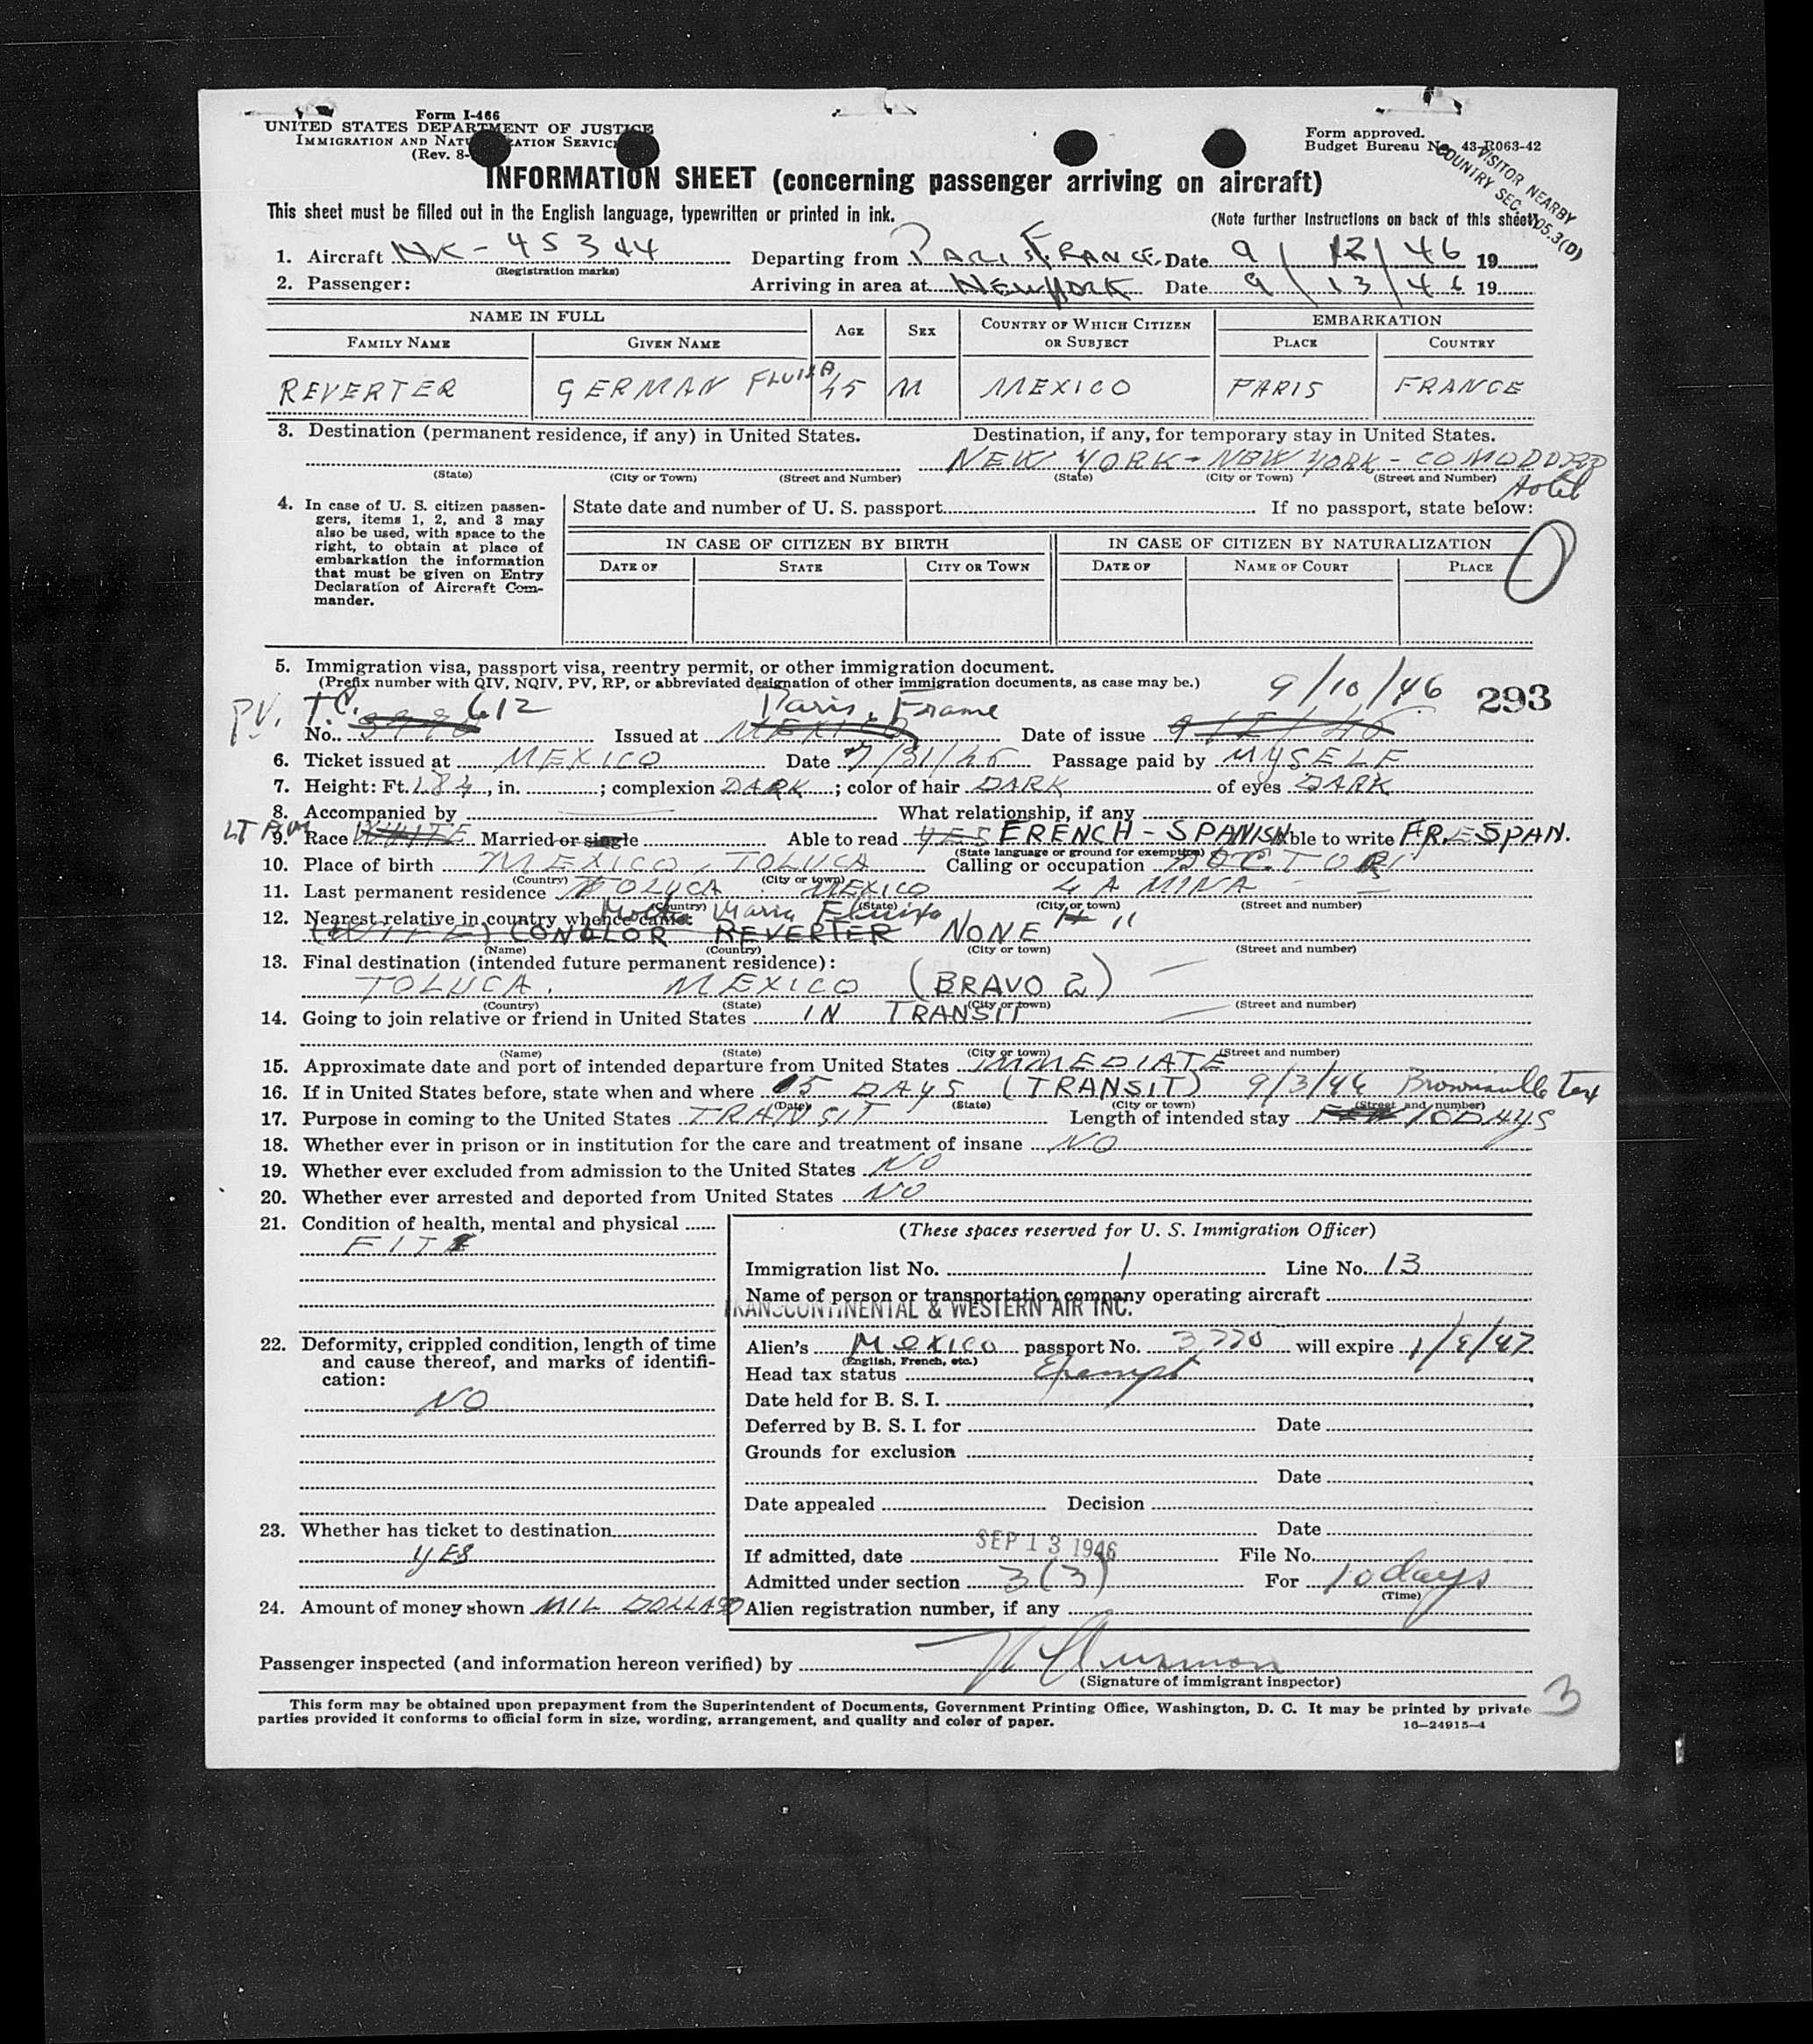 Form I-466
UNITED STATES DEPARTMENT OF JUSTICE
IMMIGRATION AND NATURALIZATION SERVICE
(Rev. 8-
Form approved.
Budget Bureau No. 43-R063-42
VISITOR NEARBY
COUNTRY SEC. 105.3(D)
INFORMATION SHEET (concerning passenger arriving on aircraft)
This sheet must be filled out in the English language, typewritten or printed in ink. (Note further instructions on back of this sheet)
1. Aircraft NK-45344 Departing from PARIS FRANCE Date 9/12/46 19
(Registration marks)
2. Passenger: Arriving in area at NEW YORK Date 9/13/46 19
NAME IN FULL AGE SEX COUNTRY OF WHICH CITIZEN OR SUBJECT EMBARKATION
FAMILY NAME GIVEN NAME PLACE COUNTRY
REVERTER GERMAN 45 M MEXICO PARIS FRANCE
3. Destination (permanent residence, if any) in United States. Destination, if any, for temporary stay in United States.
NEW YORK - NEW YORK - COMODORE
(State) (City or Town) (Street and Number) (State) (City or Town) (Street and Number) Hotel
4. In case of U. S. citizen passengers, items 1, 2, and 3 may also be used, with space to the right, to obtain at place of embarkation the information that must be given on Entry Declaration of Aircraft Commander.
State date and number of U. S. passport If no passport, state below:
IN CASE OF CITIZEN BY BIRTH IN CASE OF CITIZEN BY NATURALIZATION
DATE OF STATE CITY OR TOWN DATE OF NAME OF COURT PLACE
0
5. Immigration visa, passport visa, reentry permit, or other immigration document.
(Prefix number with QIV, NQIV, PV, RP, or abbreviated designation of other immigration documents, as case may be.) 9/10/46 293
PV. T.C. 612 Paris, France
No. Issued at MEXICO Date of issue
6. Ticket issued at MEXICO Date 7/31/46 Passage paid by MYSELF
7. Height: Ft. 1.84, in. ; complexion DARK ; color of hair DARK of eyes DARK
8. Accompanied by What relationship, if any
9. Race WHITE Married or single Able to read YES FRENCH - SPANISH Able to write FR. E SPAN.
(State language or ground for exemption)
10. Place of birth MEXICO, TOLUCA Calling or occupation DOCTOR
(Country) (City or town)
11. Last permanent residence TOLUCA MEXICO LA MINA
(Country) (State) (City or town) (Street and number)
12. Nearest relative in country whence came: Maria
(WIFE) REVERTER NONE
(Name) (Country) (City or town) (Street and number)
13. Final destination (intended future permanent residence):
TOLUCA. MEXICO (BRAVO 2)
(Country) (State) (City or town) (Street and number)
14. Going to join relative or friend in United States IN TRANSIT
(Name) (State) (City or town) (Street and number)
15. Approximate date and port of intended departure from United States IMMEDIATE
16. If in United States before, state when and where 5 DAYS (TRANSIT) 9/3/46 Brownsville Tex
(Date) (State) (City or town) (Street and number)
17. Purpose in coming to the United States TRANSIT Length of intended stay 10 DAYS
18. Whether ever in prison or in institution for the care and treatment of insane NO
19. Whether ever excluded from admission to the United States NO
20. Whether ever arrested and deported from United States NO
21. Condition of health, mental and physical
FIT
22. Deformity, crippled condition, length of time and cause thereof, and marks of identification:
NO
23. Whether has ticket to destination
YES
24. Amount of money shown MIL DOLLARS
(These spaces reserved for U. S. Immigration Officer)
Immigration list No. 1 Line No. 13
Name of person or transportation company operating aircraft
TRANSCONTINENTAL & WESTERN AIR INC.
Alien's Mexico passport No. 3770 will expire 1/9/47
(English, French, etc.)
Head tax status Exempt
Date held for B. S. I.
Deferred by B. S. I. for Date
Grounds for exclusion
Date
Date appealed Decision
Date
If admitted, date SEP 13 1946 File No.
Admitted under section 3(3) For 10 days
(Time)
Alien registration number, if any
Passenger inspected (and information hereon verified) by
(Signature of immigrant inspector)
3
This form may be obtained upon prepayment from the Superintendent of Documents, Government Printing Office, Washington, D. C. It may be printed by private
parties provided it conforms to official form in size, wording, arrangement, and quality and color of paper.
16—24915-4